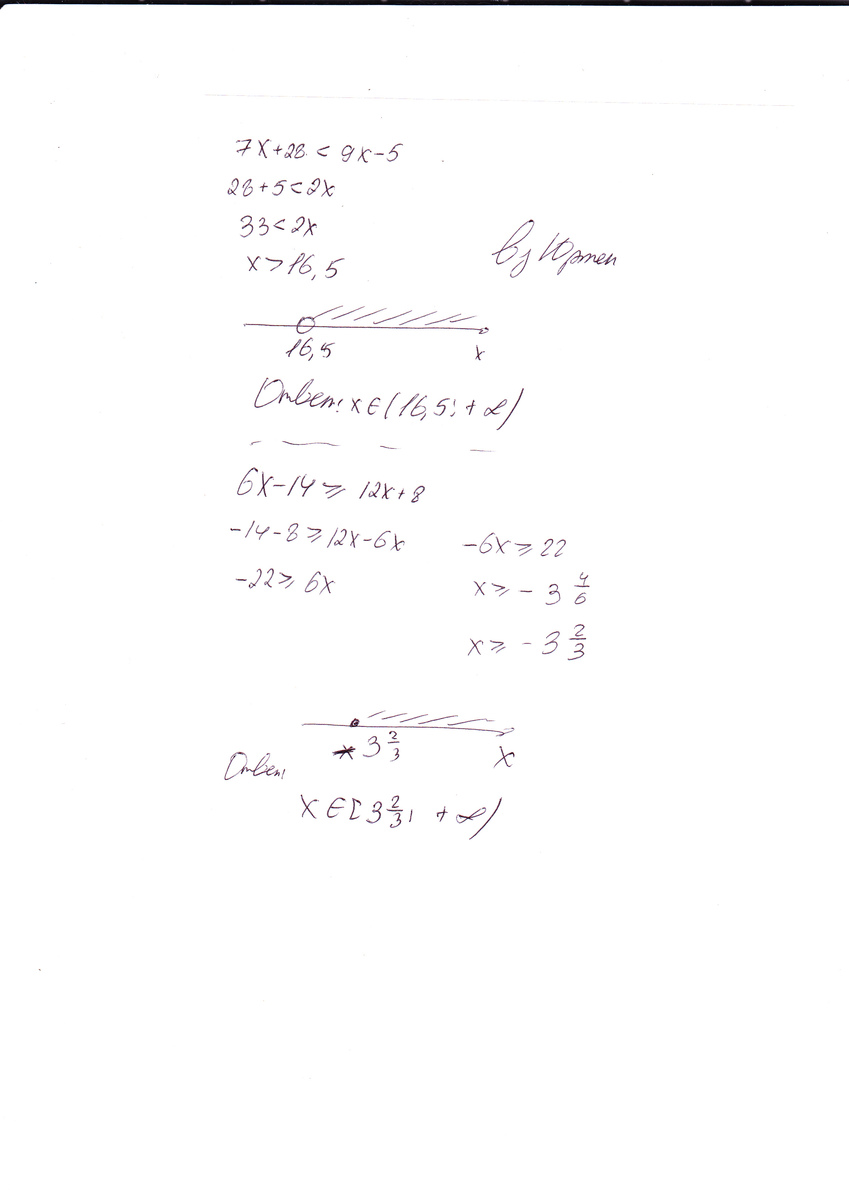 7x+28 < 9x-5
28+5<2x
33<2x
x>16,5
by Юртен
16,5 x
Ответ: x∈(16,5; +∞)
6x-14⩾ 12x+8
-14-8⩾12x-6x
-22⩾ 6x
-6x⩾22
x⩾ - 3 4/6
x⩾ - 3 2/3
3 2/3 x
Ответ:
x∈[3 2/3; +∞)